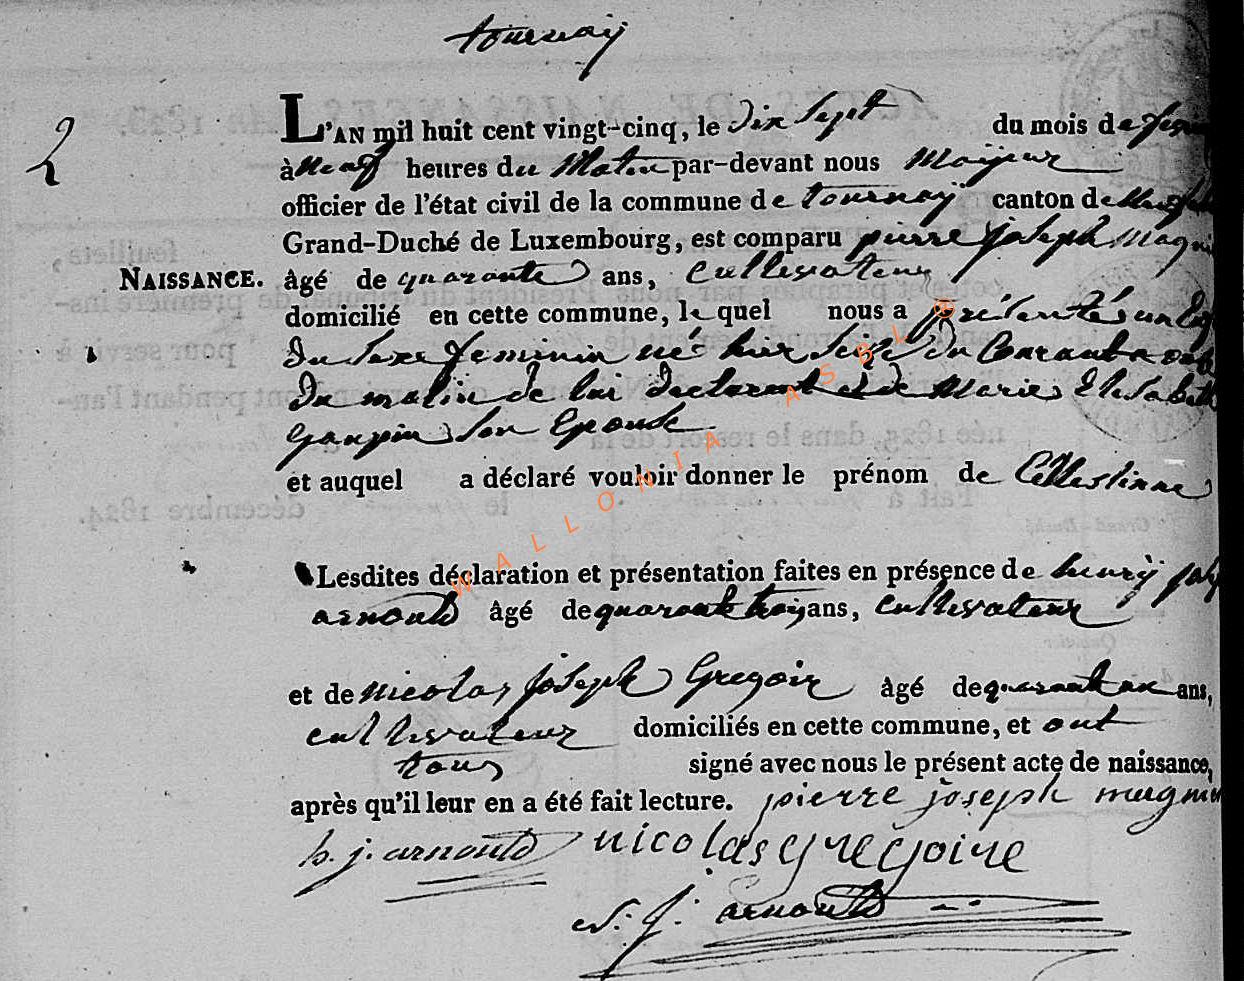 tournaÿ
2
L'AN mil huit cent vingt-cinq, le dix Sept du mois de
à neuf heures du Matin par-devant nous Maÿeur
officier de l'état civil de la commune de tournaÿ canton de
Grand-Duché de Luxembourg, est comparu pierre joseph
NAISSANCE. âgé de quarante ans, Cultivateur
domicilié en cette commune, le quel nous a présenté un
du Sexe feminin né hier Seize du Courant a
du matin de lui declarant et de Marie Elisabeth
Son Epouse
et auquel a déclaré vouloir donner le prénom de Cellestinne
Lesdites déclaration et présentation faites en présence de henrÿ
arnould âgé de quarante trois ans, Cultivateur
et de nicolas joseph Gregoir âgé de ans,
cultivateur domiciliés en cette commune, et ont
tous signé avec nous le présent acte de naissance,
après qu'il leur en a été fait lecture. pierre joseph
h. j. arnould nicolas gregoire
J. arnould
WALLONIA ASBL